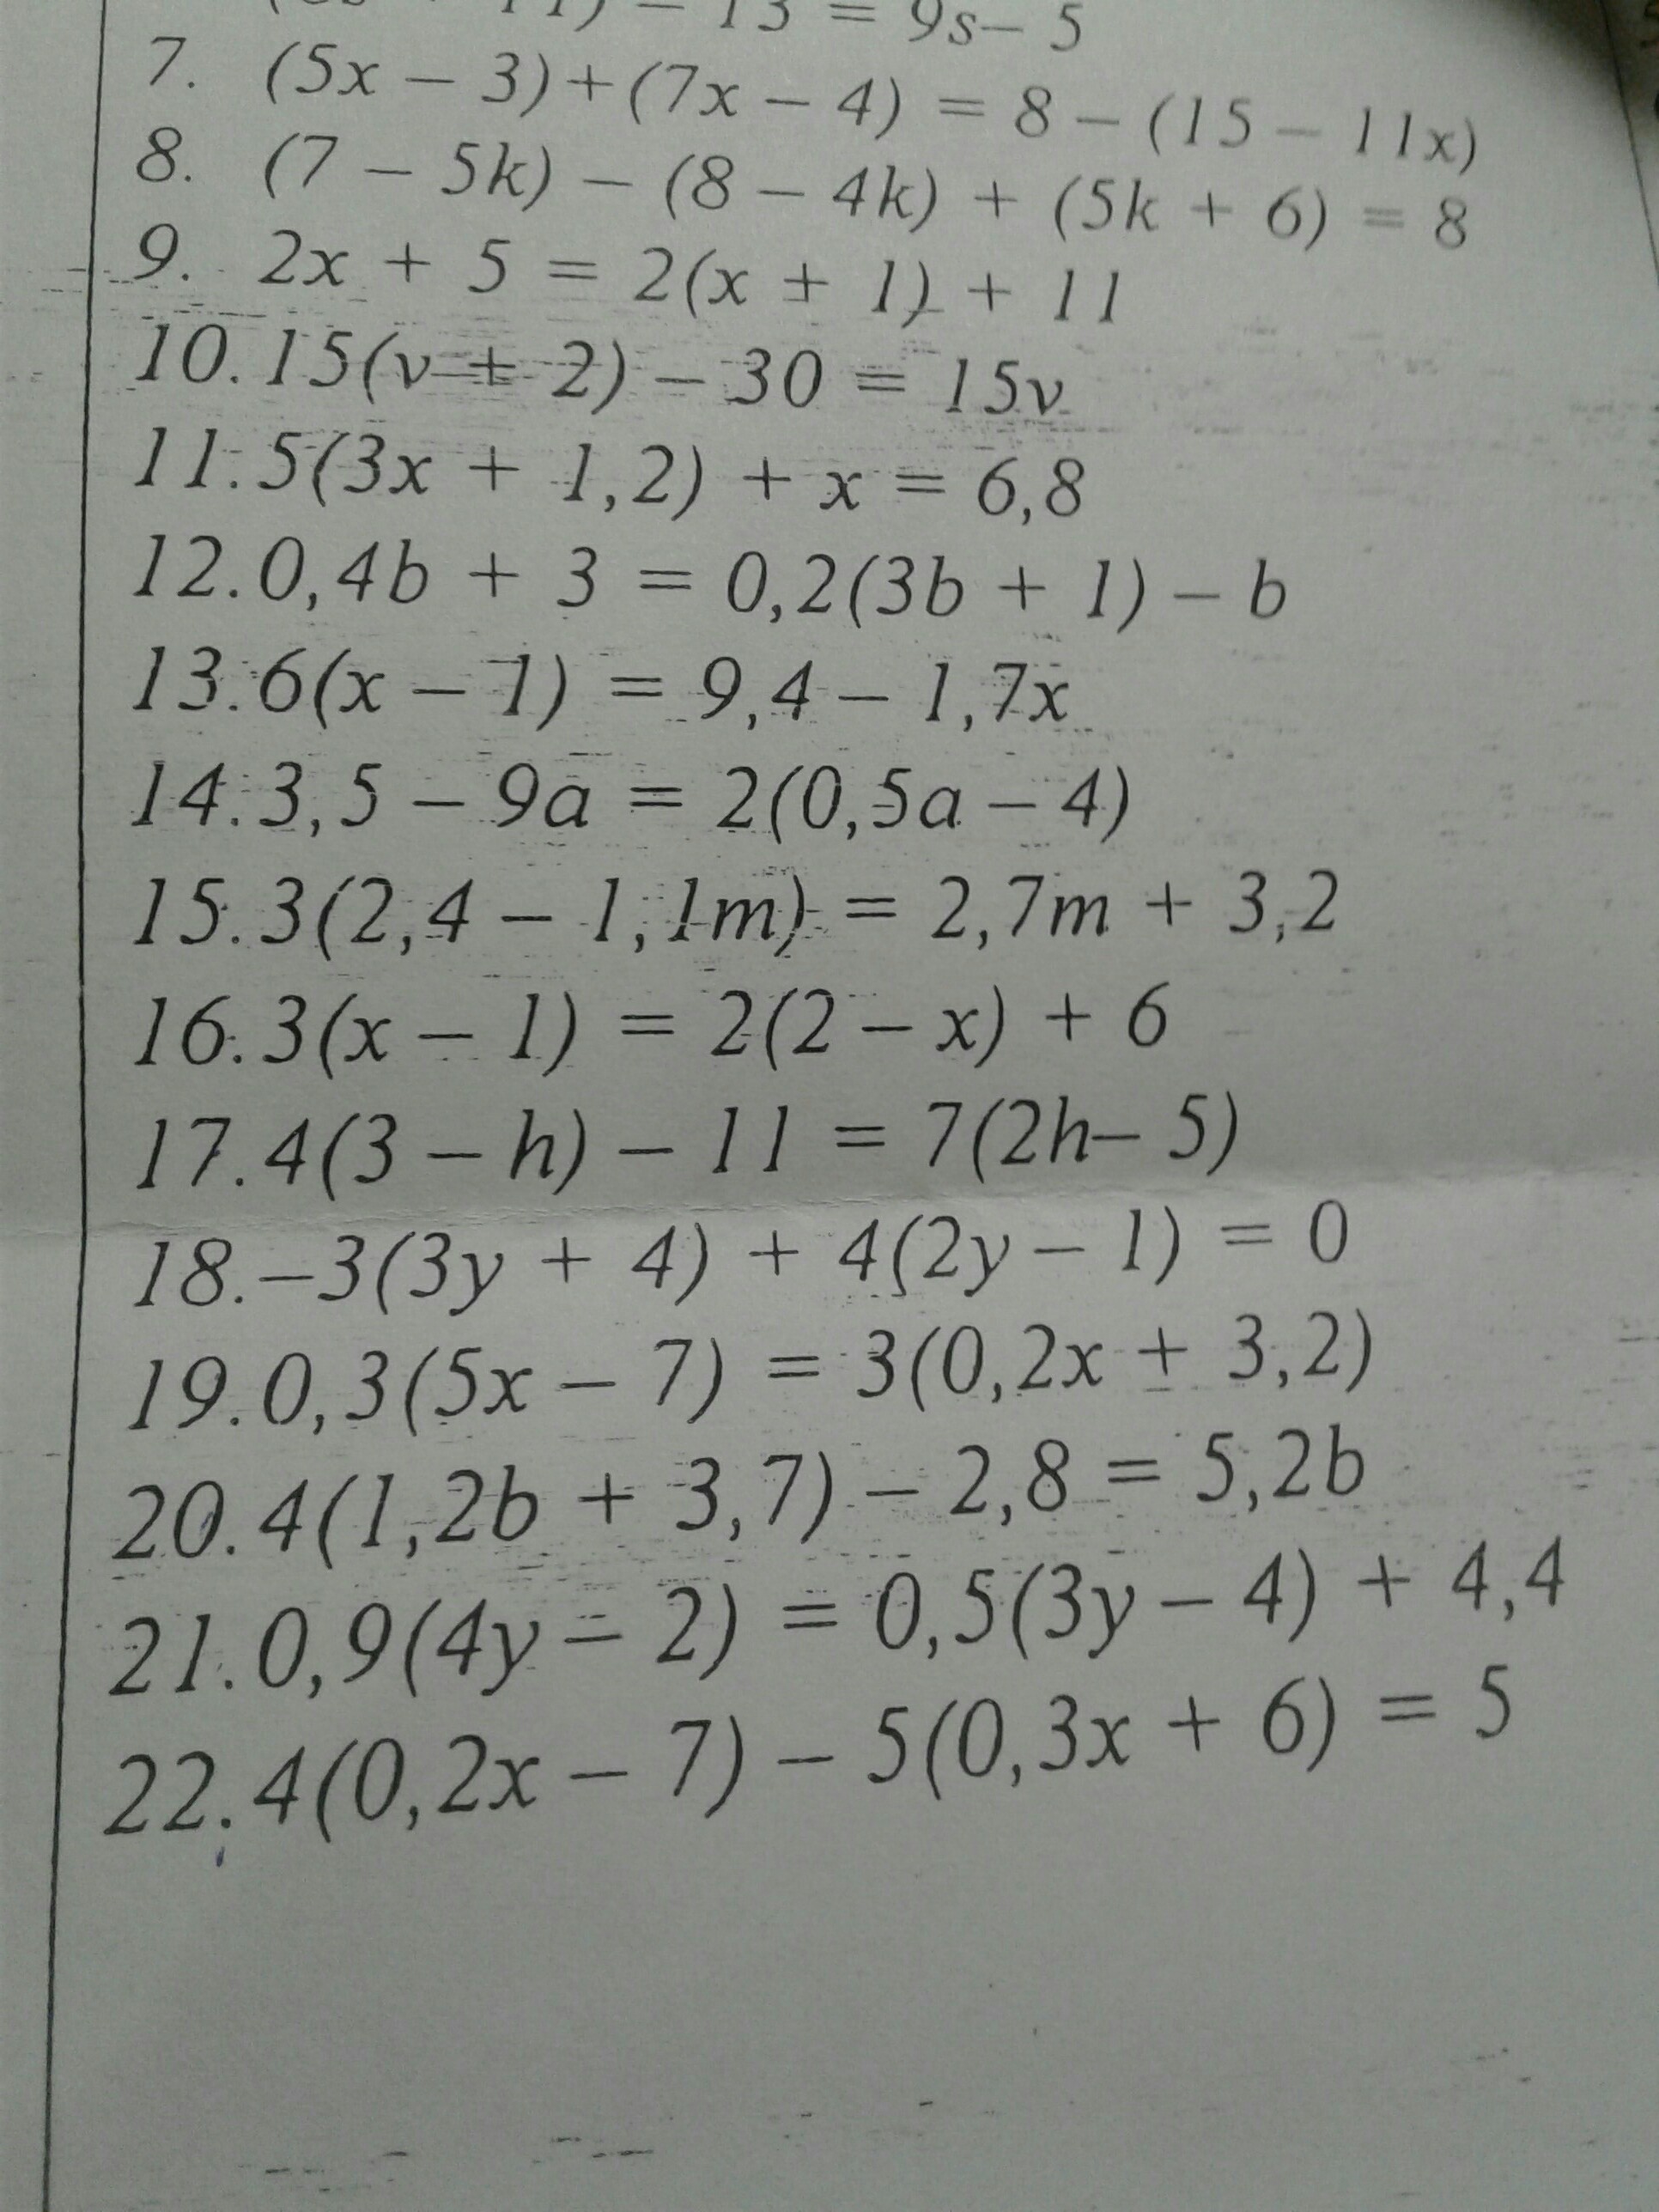 – 13 = 9s– 5
7. (5x – 3)+(7x – 4) = 8 – (15 – 11x)
8. (7 – 5k) – (8 – 4k) + (5k + 6) = 8
9. 2x + 5 = 2(x + 1) + 11
10. 15(v + 2) – 30 = 15v
11. 5(3x + 1,2) + x = 6,8
12. 0,4b + 3 = 0,2(3b + 1) – b
13. 6(x – 1) = 9,4 – 1,7x
14. 3,5 – 9a = 2(0,5a – 4)
15. 3(2,4 – 1,1m) = 2,7m + 3,2
16. 3(x – 1) = 2(2 – x) + 6
17. 4(3 – h) – 11 = 7(2h– 5)
18. –3(3y + 4) + 4(2y – 1) = 0
19. 0,3(5x – 7) = 3(0,2x + 3,2)
20. 4(1,2b + 3,7) – 2,8 = 5,2b
21. 0,9(4y – 2) = 0,5(3y – 4) + 4,4
22. 4(0,2x – 7) – 5(0,3x + 6) = 5